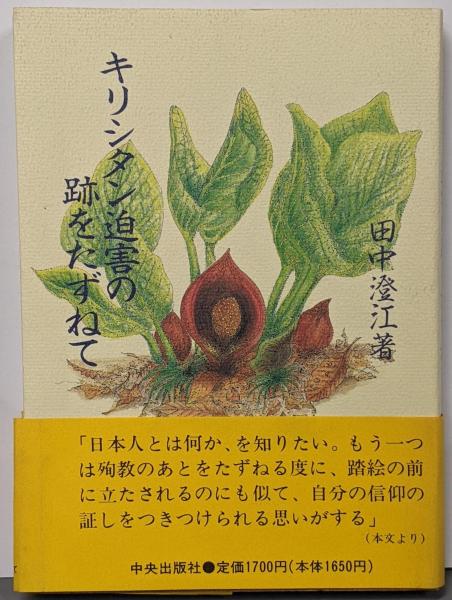 キリシタン迫害の
跡をたずねて
田中澄江著
「日本人とは何か、を知りたい。もう一つ
は殉教のあとをたずねる度に、踏絵の前
に立たされるのにも似て、自分の信仰の
証しをつきつけられる思いがする」
(本文より)
中央出版社●定価1700円(本体1650円)